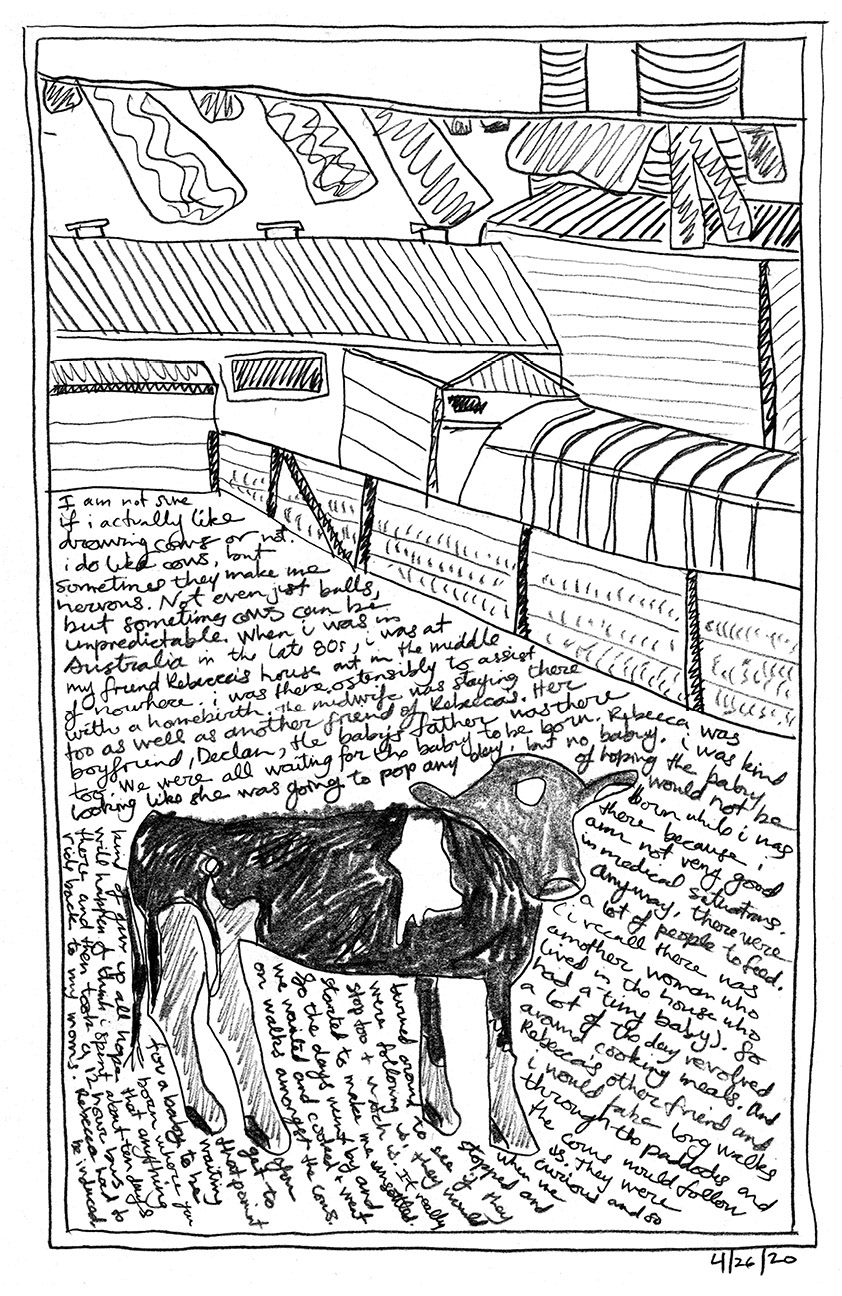 I am not sure
if i actually like
drawing cows or not.
i do like cows, but
sometimes they make me
nervous. Not even just bulls,
but sometimes cows can be
unpredictable. When i was in
Australia in the late 80s, i was at
my friend Rebecca's house out in the middle
of nowhere. i was there ostensibly to assist
with a homebirth. The midwife was staying there
too as well as another friend of Rebeccas. Her
boyfriend, Declan, the babys father was there
too. We were all waiting for the baby to be born. Rebecca was
looking like she was going to pop any day, but no baby. i was kind
of hoping the baby
would not be
born while i was
there because i
am not very good
in medical situations.
Anyway, there were
a lot of people to feed.
(i recall there was
another woman who
lived in the house who
had a tiny baby). So
a lot of the day revolved
around cooking meals. And
Rebecca's other friend and
i would take long walks
through the paddocks and
the cows would follow
us. They were
curious and so
when we
stopped and
turned around to see if they
were following us they would
stop too + watch us. It really
started to make me unsettled.
So the days went by and
we waited and cooked + went
on walks amongst the cows.
You
get to
that point
waiting
for a baby to be
born where you
kind of give up all hope that anything
will happen. I think i spent about ten days
there and then took a 12 hour bus
ride back to my moms. Rebecca had to
be induced
4/26/20